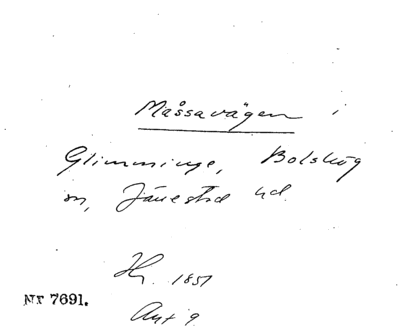 Mässavägen i
Glimminge, Bolshög
sn, Järrestad hd.
Hy. 1851
Nr 7691.